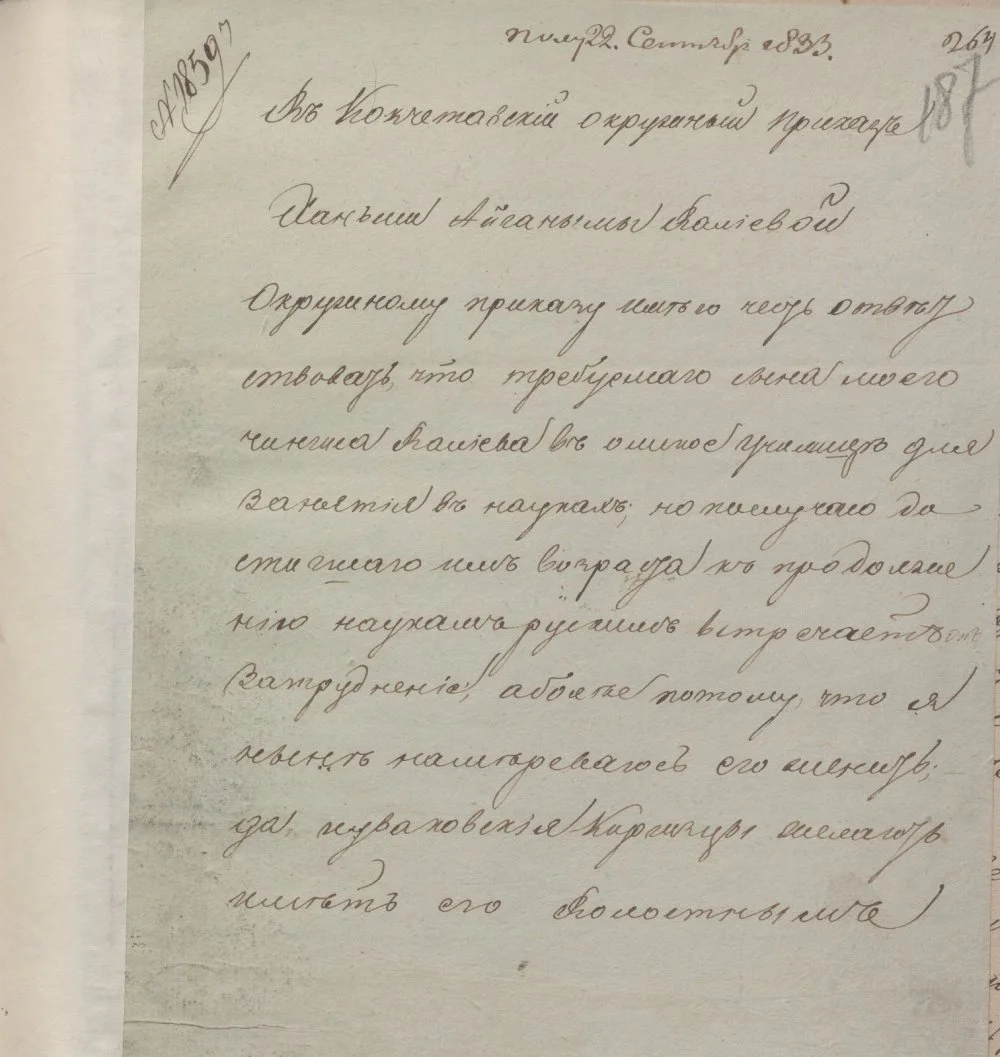 № 1859
полу 22. Сентябр 1833.
264
187
Въ Кокчетавскій окружный приказъ
Ханъши Айганымы Валіевой
Окружному приказу имѣю честь отвѣт
ствовать, что требуемаго сына моего
чингиса Валіева въ омское училище для
занятія въ наукахъ; но по случаю до
стигшаго имъ возраста къ продолже
нію наукамъ рускимъ встречаетъ
затрудненіе, а более потому, что я
нынѣ намѣреваюсь его женить;
да, Киргизцы желають
имѣть его Волостнымъ